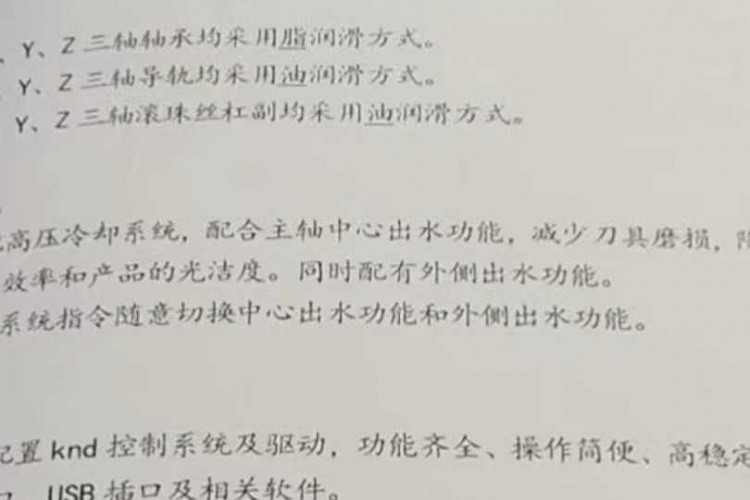 、Y、Z 三轴轴承均采用脂润滑方式。
Y、Z 三轴导轨均采用油润滑方式。
Y、Z 三轴滚珠丝杠副均采用油润滑方式。
高压冷却系统，配合主轴中心出水功能，减少刀具磨损，
效率和产品的光洁度。同时配有外侧出水功能。
系统指令随意切换中心出水功能和外侧出水功能。
配置 knd 控制系统及驱动，功能齐全、操作简便、高稳定
口、USB 插口及相关软件。